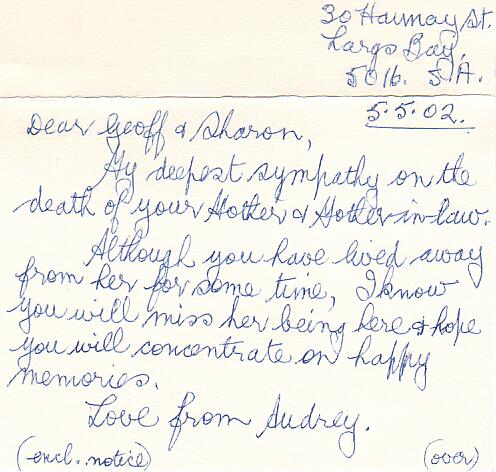 30 Hannay St.
Largs Bay,
5016. S.A.
5.5.02.
Dear Geoff & Sharon,
My deepest sympathy on the
death of your Mother & Mother-in-law.
Although you have lived away
from her for some time, I know
you will miss her being here & hope
you will concentrate on happy
memories.
Love from Audrey.
(encl. notice)
(over)